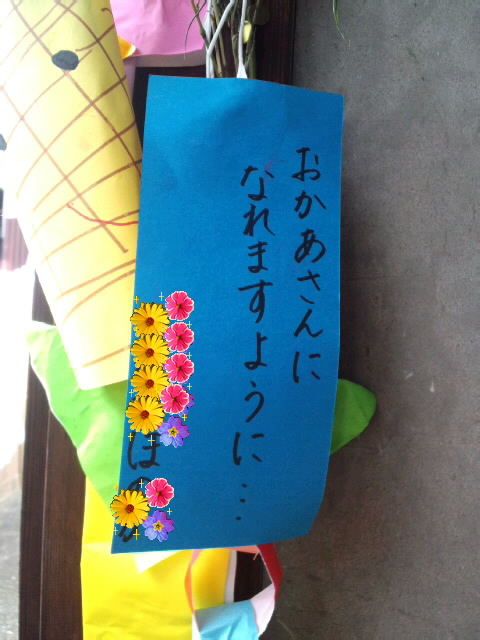 おかあさんに
なれますように…
ほ